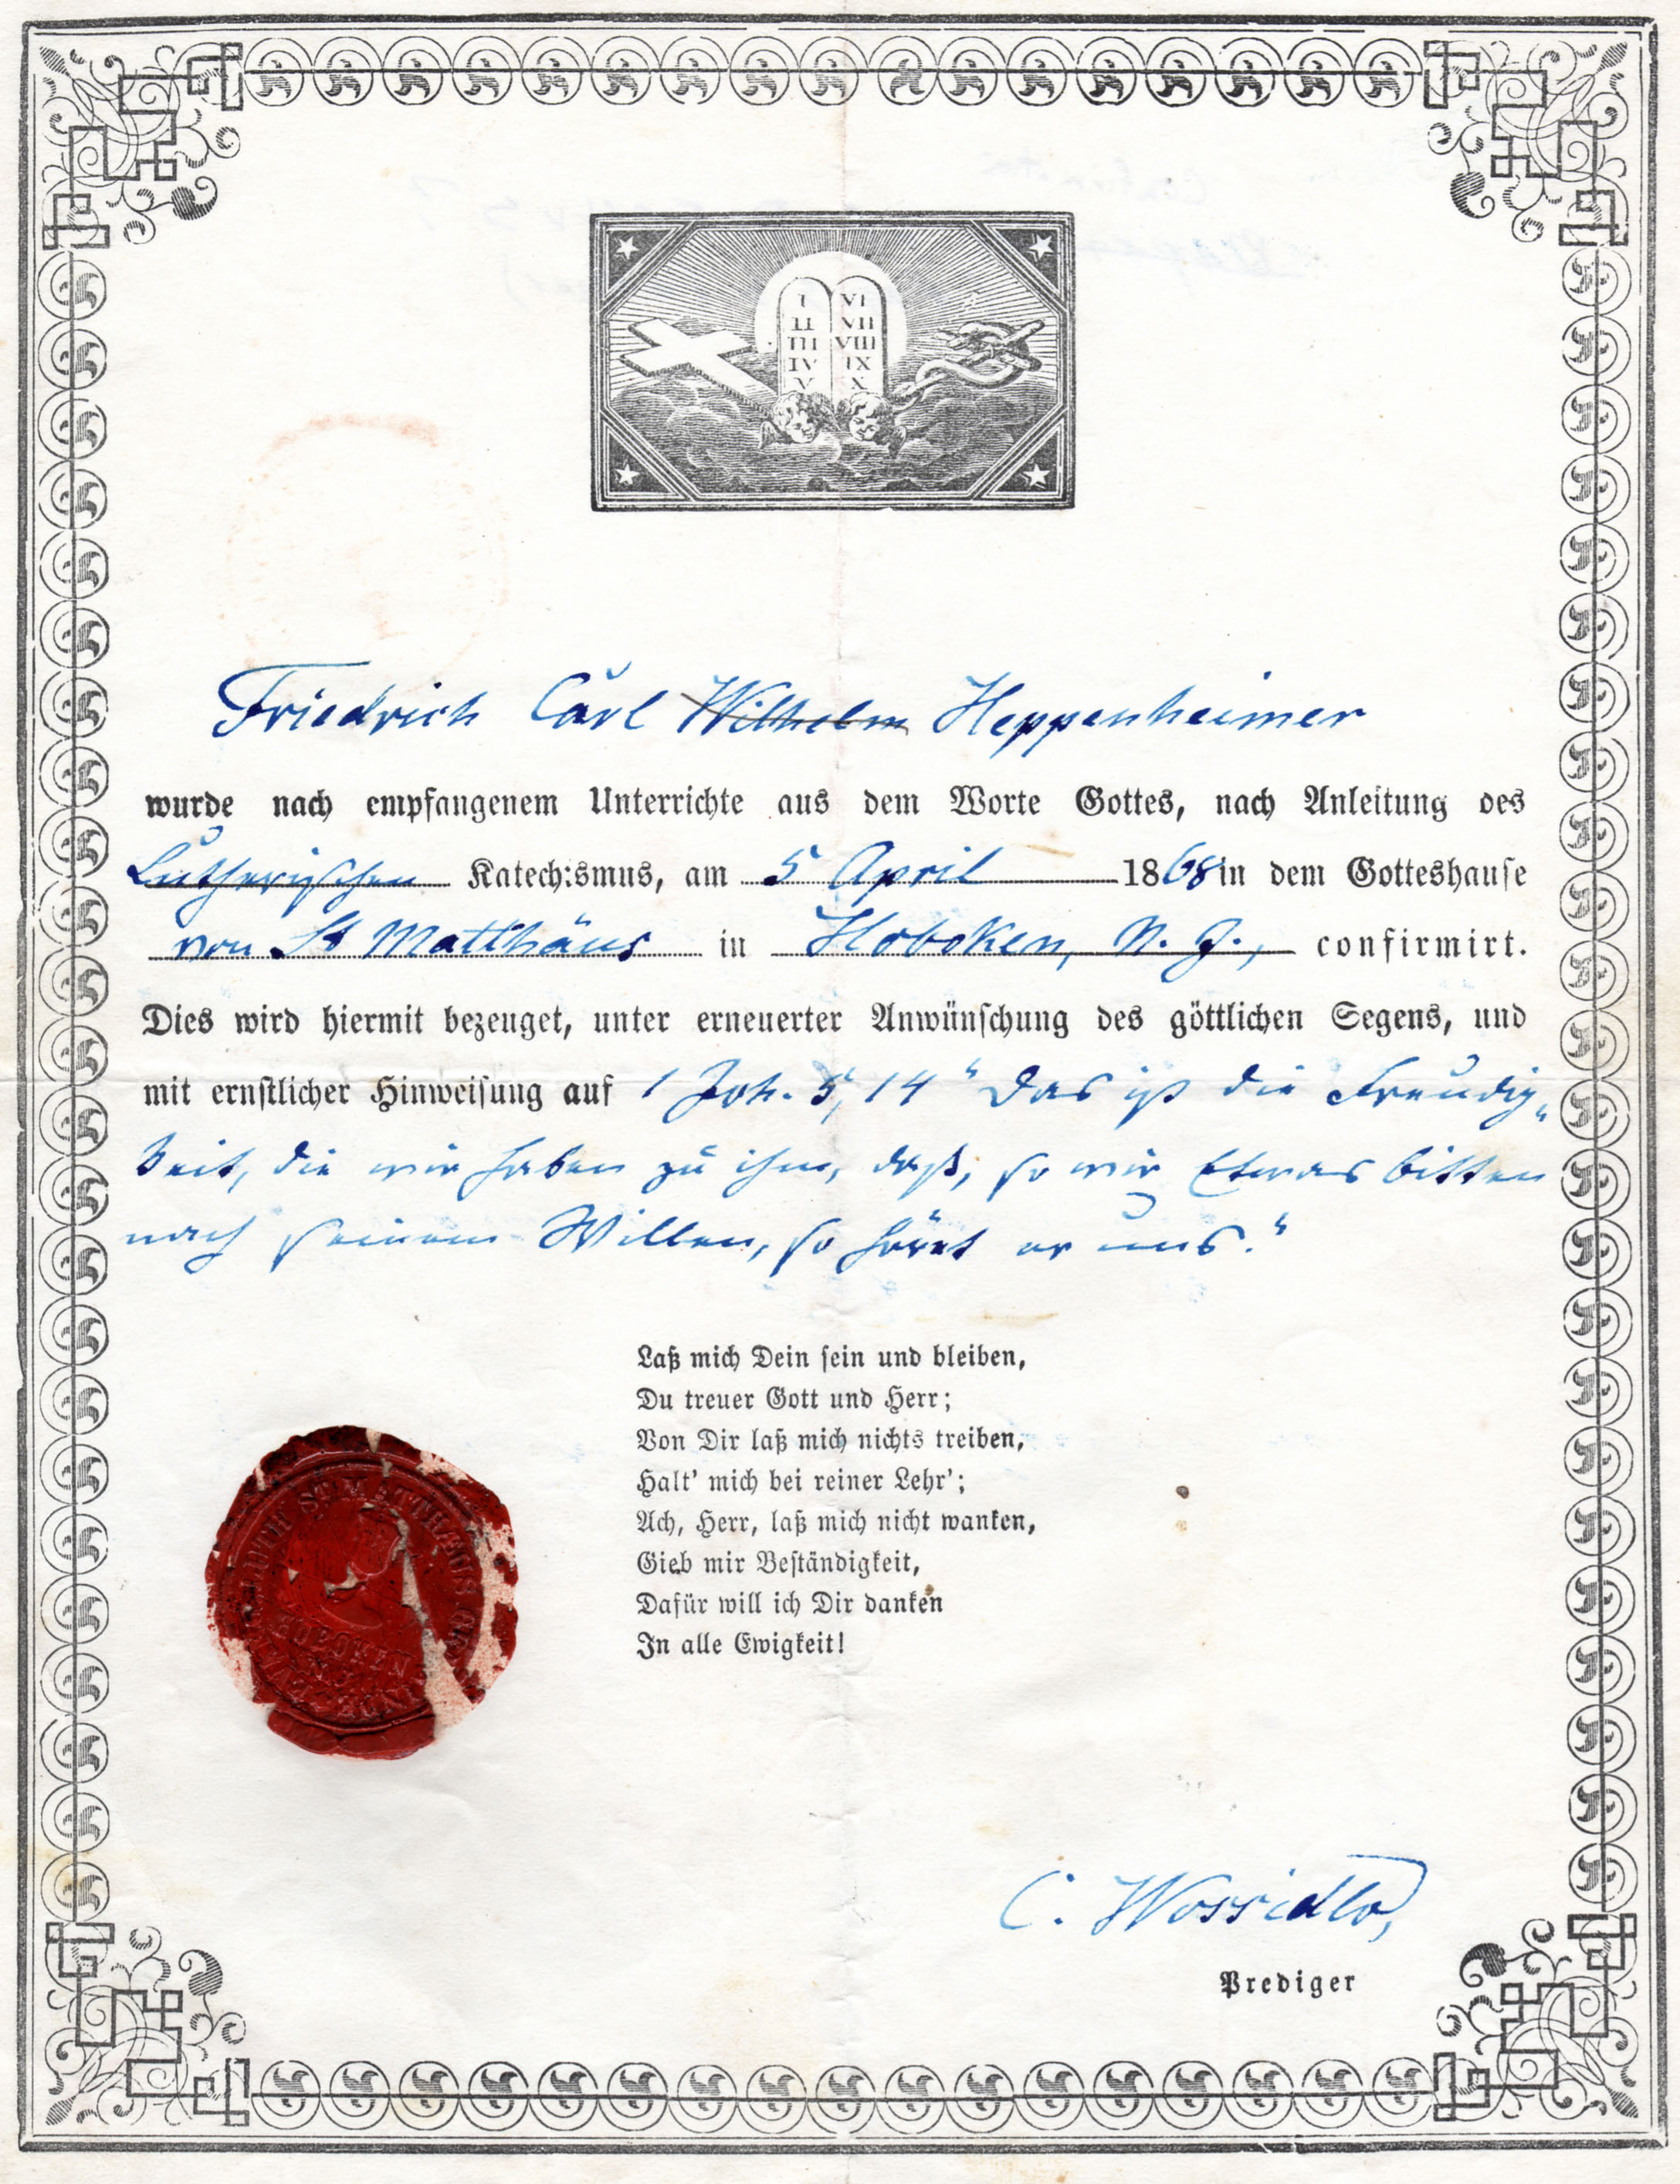 I VI
II VII
III VIII
IV IX
V X
Friedrich Carl Wilhelm Heppenheimer
wurde nach empfangenem Unterrichte aus dem Worte Gottes, nach Anleitung des
Lutherischen Katech:smus, am 5 April 1868 in dem Gotteshause
von St Matthäus in Hoboken, N. J., confirmirt.
Dies wird hiermit bezeuget, unter erneuerter Anwünschung des göttlichen Segens, und
mit ernstlicher Hinweisung auf 1 Joh. 5, 14 "Das ist die Freudig„
keit, die wir haben zu ihm, daß, so wir Etwas bitten
nach seinem Willen, so höret er uns."
Laß mich Dein sein und bleiben,
Du treuer Gott und Herr;
Von Dir laß mich nichts treiben,
Halt' mich bei reiner Lehr';
Ach, Herr, laß mich nicht wanken,
Gieb mir Beständigkeit,
Dafür will ich Dir danken
In alle Ewigkeit!
ST MATTHAEUS
HOBOKEN
C. Wossidlo,
Prediger